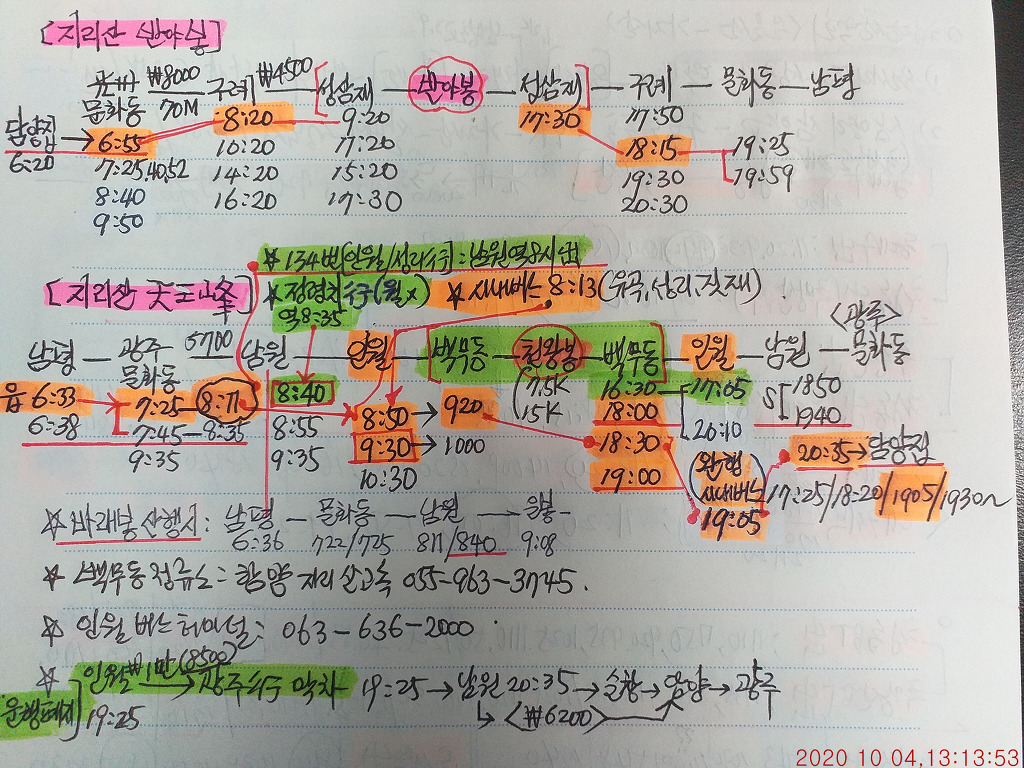 [지리산 반야봉]
光州 ₩8000 구례 ₩4500 [성삼재 — 반야봉 — 성삼재] — 구례 — 문화동 — 남평
문화동 70M
담양집 → 6:55 8:20 9:20 17:30 17:50
6:20 7:25,40,52 10:20 11:20 18:15 19:25
8:40 14:20 15:20 19:30 19:59
9:50 16:20 17:30 20:30
☆ 134번[인월/성리行]:남원역8시
[지리산 天王峰] ☆정령치行(월x) ☆시내버스 8:13(유곡,성리,짓재)
역8:35
<광주>
남평 — 광주 5700 남원 — 인월 — [백무동 — 천왕봉 — 백무동] 인월 — 남원 — 문화동
문화동 (7.5K 16:30 17:05 1850
6:33 7:25 8:11 8:40 8:50 → 920 15K 18:00 1940
6:38 7:45 — 8:35 8:55 9:30 → 1000 18:30 20:10 20:35 → 담양집
9:35 9:35 10:30 19:00 (완행 시내버스) 17:25/18:20/1905/1930~
19:05
☆바래봉 산행시: 남평 — 문화동 — 남원 → 운봉 —
6:36 722/725 811/840 9:08
☆ 백무동정류소: 함양 지리산고속 055-963-3745.
☆ 인월 버스터미널: 063-636-2000
☆ 인월 ₩1만(8500) → 광주行 막차 19:25 → 남원 20:35 → 순창 → 담양 → 광주
운행폐지] 19:25 ↳ <₩6200>
2020 10 04,13:13:53